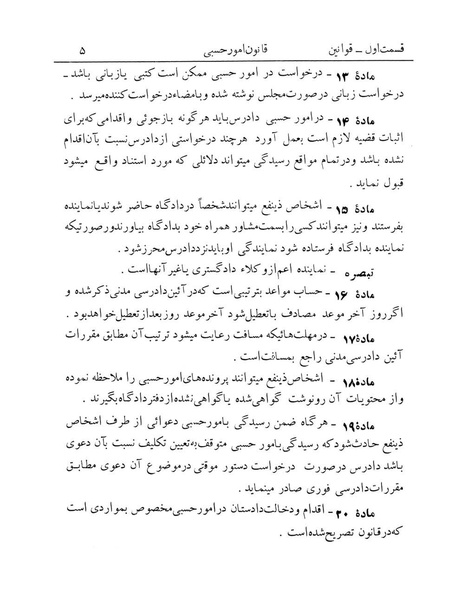 قسمت اول ــ قوانین قانون امور حسبی ۵
مادهٔ ۱۳ ــ درخواست در امور حسبی ممکن است کتبی یا زبانی باشد ــ
درخواست زبانی در صورت مجلس نوشته شده و بامضاء درخواست کننده میرسد .
مادهٔ ۱۴ ــ در امور حسبی دادرس باید هرگونه بازجوئی و اقدامی که برای
اثبات قضیه لازم است بعمل آورد هرچند درخواستی از دادرس نسبت بآن اقدام
نشده باشد و در تمام مواقع رسیدگی میتواند دلائلی که مورد استناد واقع میشود
قبول نماید .
مادهٔ ۱۵ ــ اشخاص ذینفع میتوانند شخصاً در دادگاه حاضر شوند یا نماینده
بفرستند و نیز میتوانند کسی را بسمت مشاور همراه خود بدادگاه بیاورند و در صورتیکه
نماینده بدادگاه فرستاده شود نمایندگی او باید نزد دادرس محرز شود .
تبصره ــ نماینده اعم از وکلاء دادگستری یا غیر آنها است .
مادهٔ ۱۶ ــ حساب مواعد بترتیبی است که در آئین دادرسی مدنی ذکر شده و
اگر روز آخر موعد مصادف با تعطیل شود آخر موعد روز بعد از تعطیل خواهد بود .
مادهٔ ۱۷ ــ در مهلت‌هائیکه مسافت رعایت میشود ترتیب آن مطابق مقررات
آئین دادرسی مدنی راجع بمسافت است .
مادهٔ ۱۸ ــ اشخاص ذینفع میتوانند پرونده‌های امور حسبی را ملاحظه نموده
و از محتویات آن رونوشت گواهی شده یا گواهی نشده از دفتر دادگاه بگیرند .
مادهٔ ۱۹ ــ هرگاه ضمن رسیدگی بامور حسبی دعوائی از طرف اشخاص
ذینفع حادث شود که رسیدگی بامور حسبی متوقف به تعیین تکلیف نسبت بآن دعوی
باشد دادرس در صورت درخواست دستور موقتی در موضوع آن دعوی مطابق
مقررات دادرسی فوری صادر مینماید .
مادهٔ ۲۰ ــ اقدام و دخالت دادستان در امور حسبی مخصوص بمواردی است
که در قانون تصریح شده است .